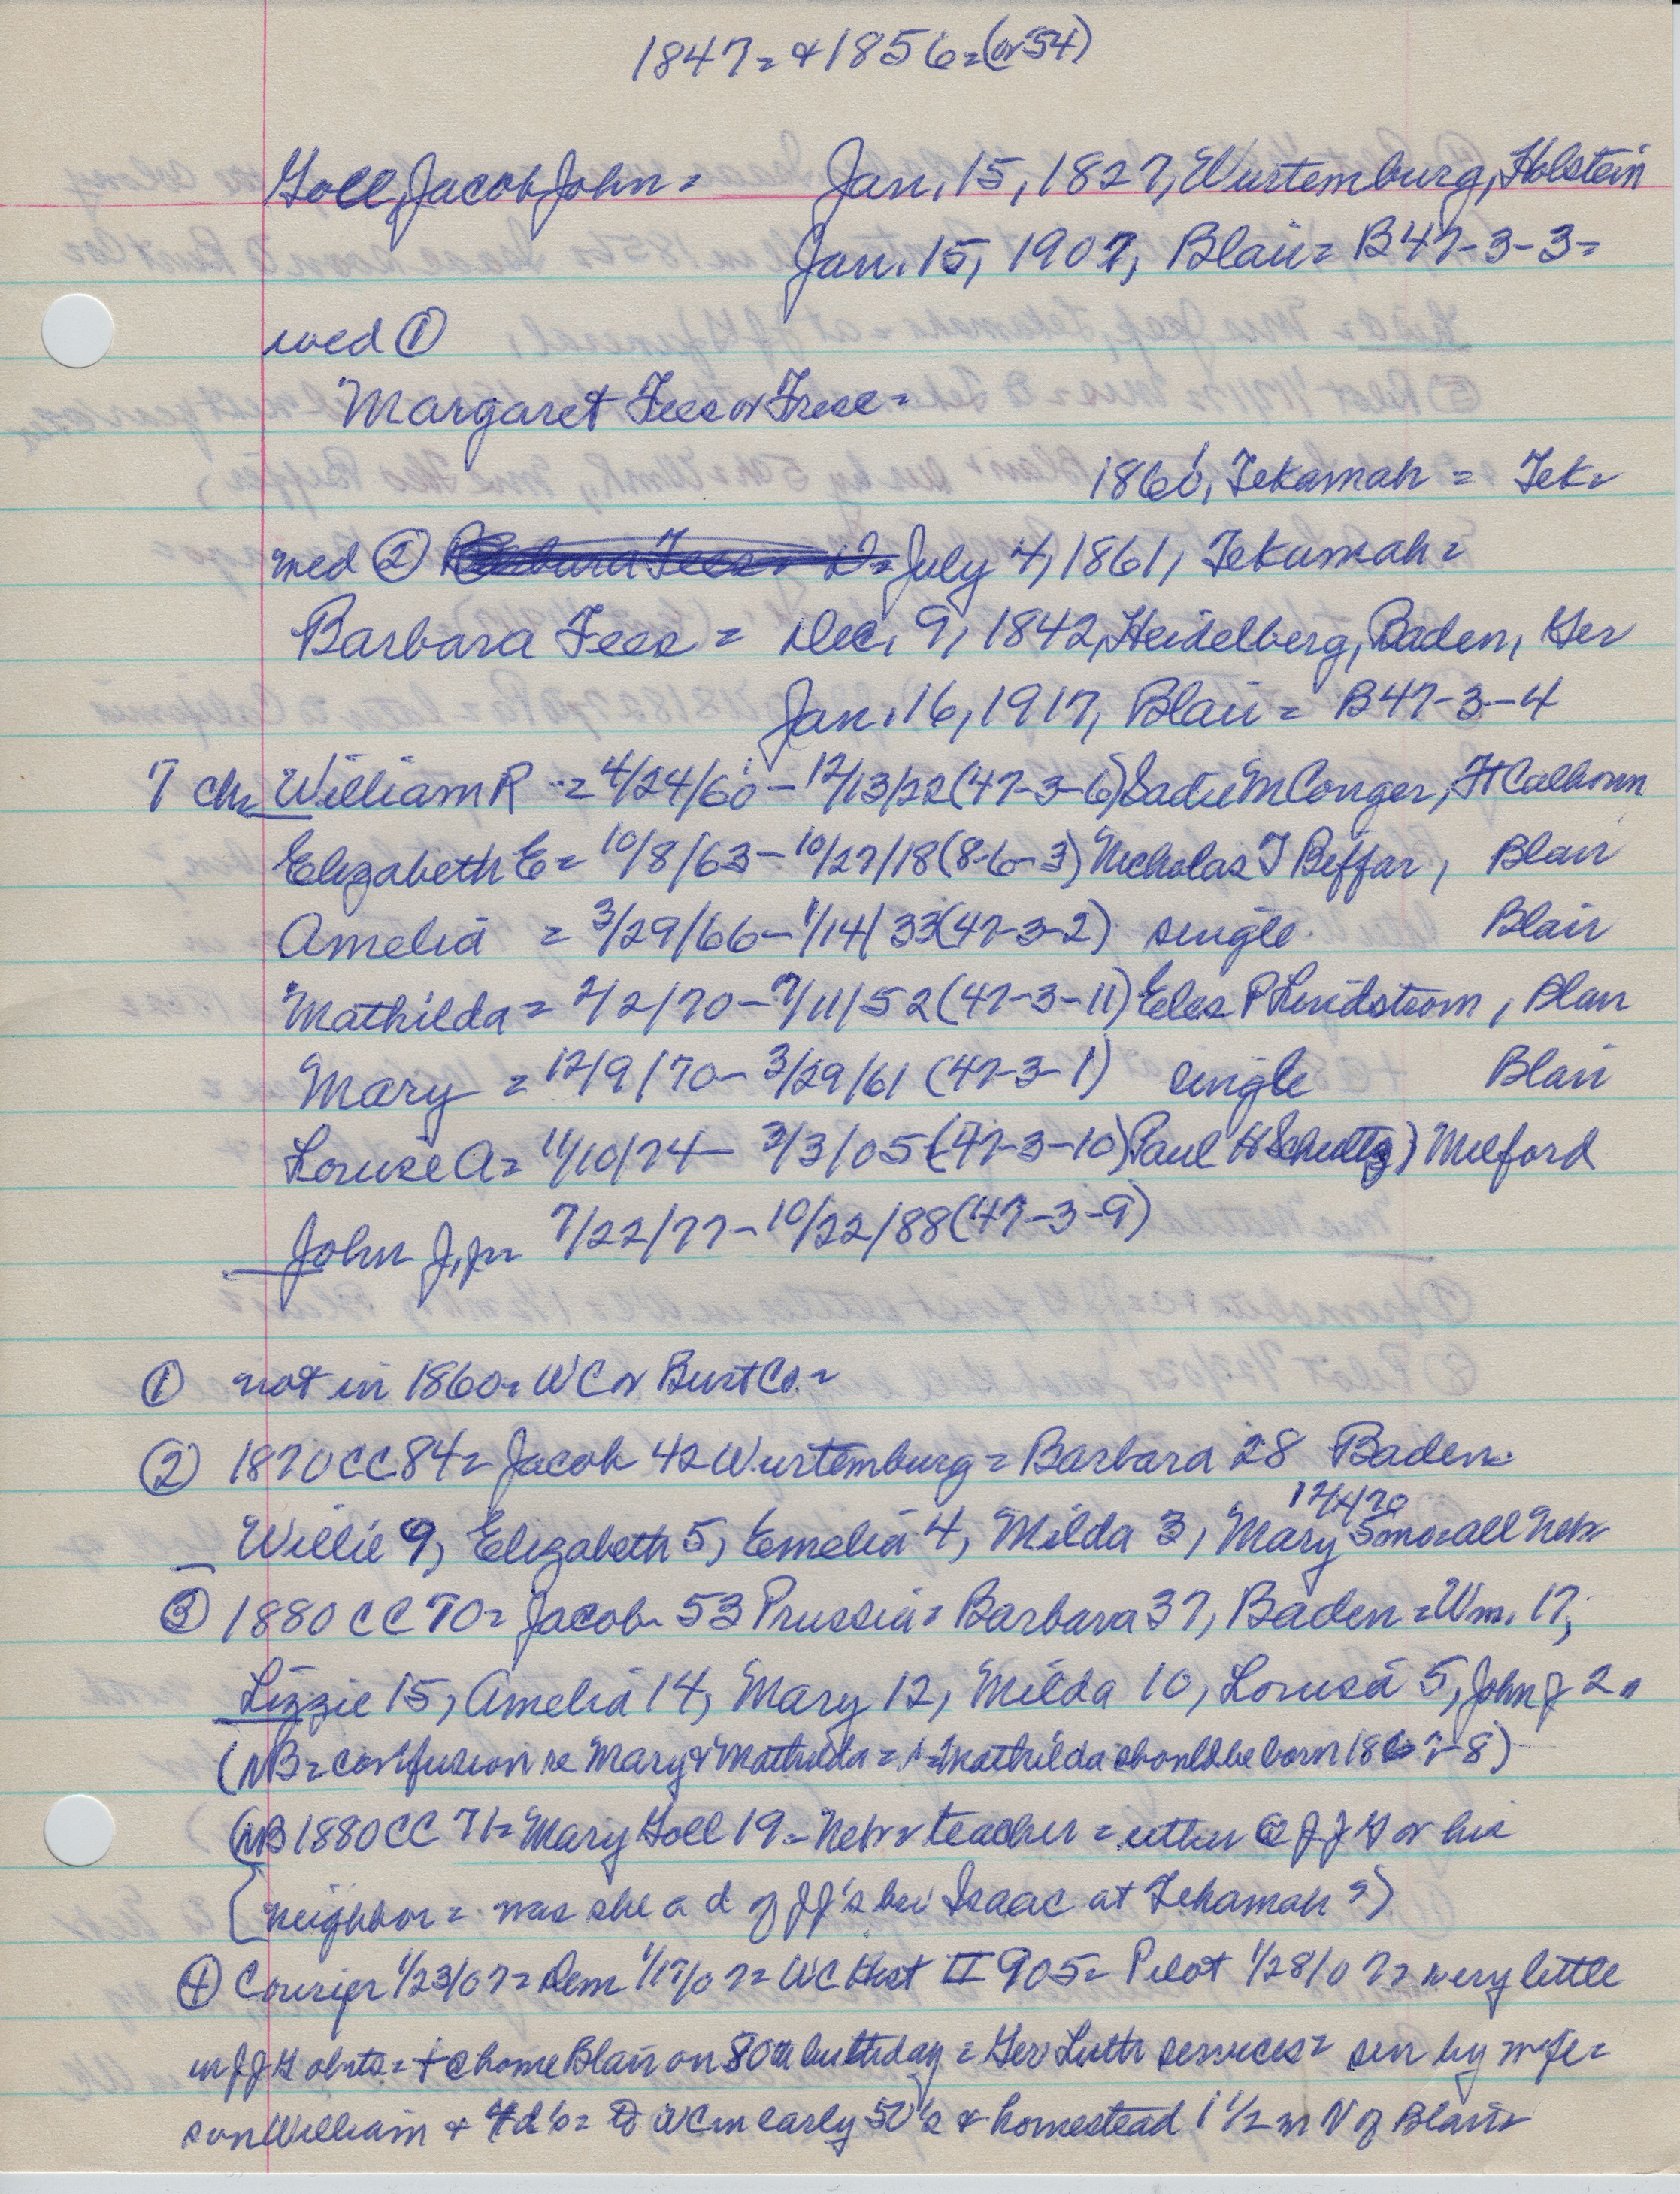 1847= & 1856=(or 54)
Goll, Jacob John = Jan. 15, 1827, Wurtemburg, Holstein
Jan. 15, 1907, Blair= B47-3-3=
wed ①
Margaret Fees or Frese=
1860, Tekamah = Tek=
wed ② July 4, 1861, Tekamah=
Barbara Fees = Dec. 9, 1842, Heidelberg, Baden, Ger
Jan. 16, 1917, Blair= B47-3-4
7 ch= William R = 4/24/60 - 12/13/22 (47-3-6) Sadie M Conger, Ft Calhoun
Elizabeth E= 10/8/63 - 10/27/18 (8-6-3) Nicholas J Beffar, Blair
Amelia = 3/29/66 - 1/14/33 (47-3-2) single Blair
Mathilda= 2/2/70 - 7/11/52 (47-3-11) Eeles P Lindstrom, Blair
Mary = 12/9/70 - 3/29/61 (47-3-1) single Blair
Louise A= 11/10/74 - 3/3/05 (47-3-10) Paul H Schultz, Milford
John J, jr= 7/22/77 - 10/22/88 (47-3-9)
① not in 1860= WC or Burt Co=
② 1870 CC 84= Jacob 42 Wurtemburg= Barbara 28 Baden
12/x/70
Willie 9, Elizabeth 5, Emelia 4, Milda 3, Mary 5mo=all Nebr
③ 1880 CC 70= Jacob 53 Prussia= Barbara 37, Baden= Wm. 17,
Lizzie 15, Amelia 14, Mary 12, Milda 10, Louisa 5, John J 2=
(NB= confusion re Mary & Mathilda = Mathilda should be born 1867-8)
(NB 1880 CC 71= Mary Goll 19= Nebr= teacher = either @ JJG or his
neighbor= was she a d of JJ's br Isaac at Tekamah?)
④ Courier 1/23/07= Dem 1/17/07= WC Hist II 905= Pilot 1/28/07= very little
in JJG obits= + @ home Blair on 80th birthday = Ger Luth services= sur by wife=
son William & 4 d's= to WC in early 50's & homestead 1 1/2 m N of Blair=